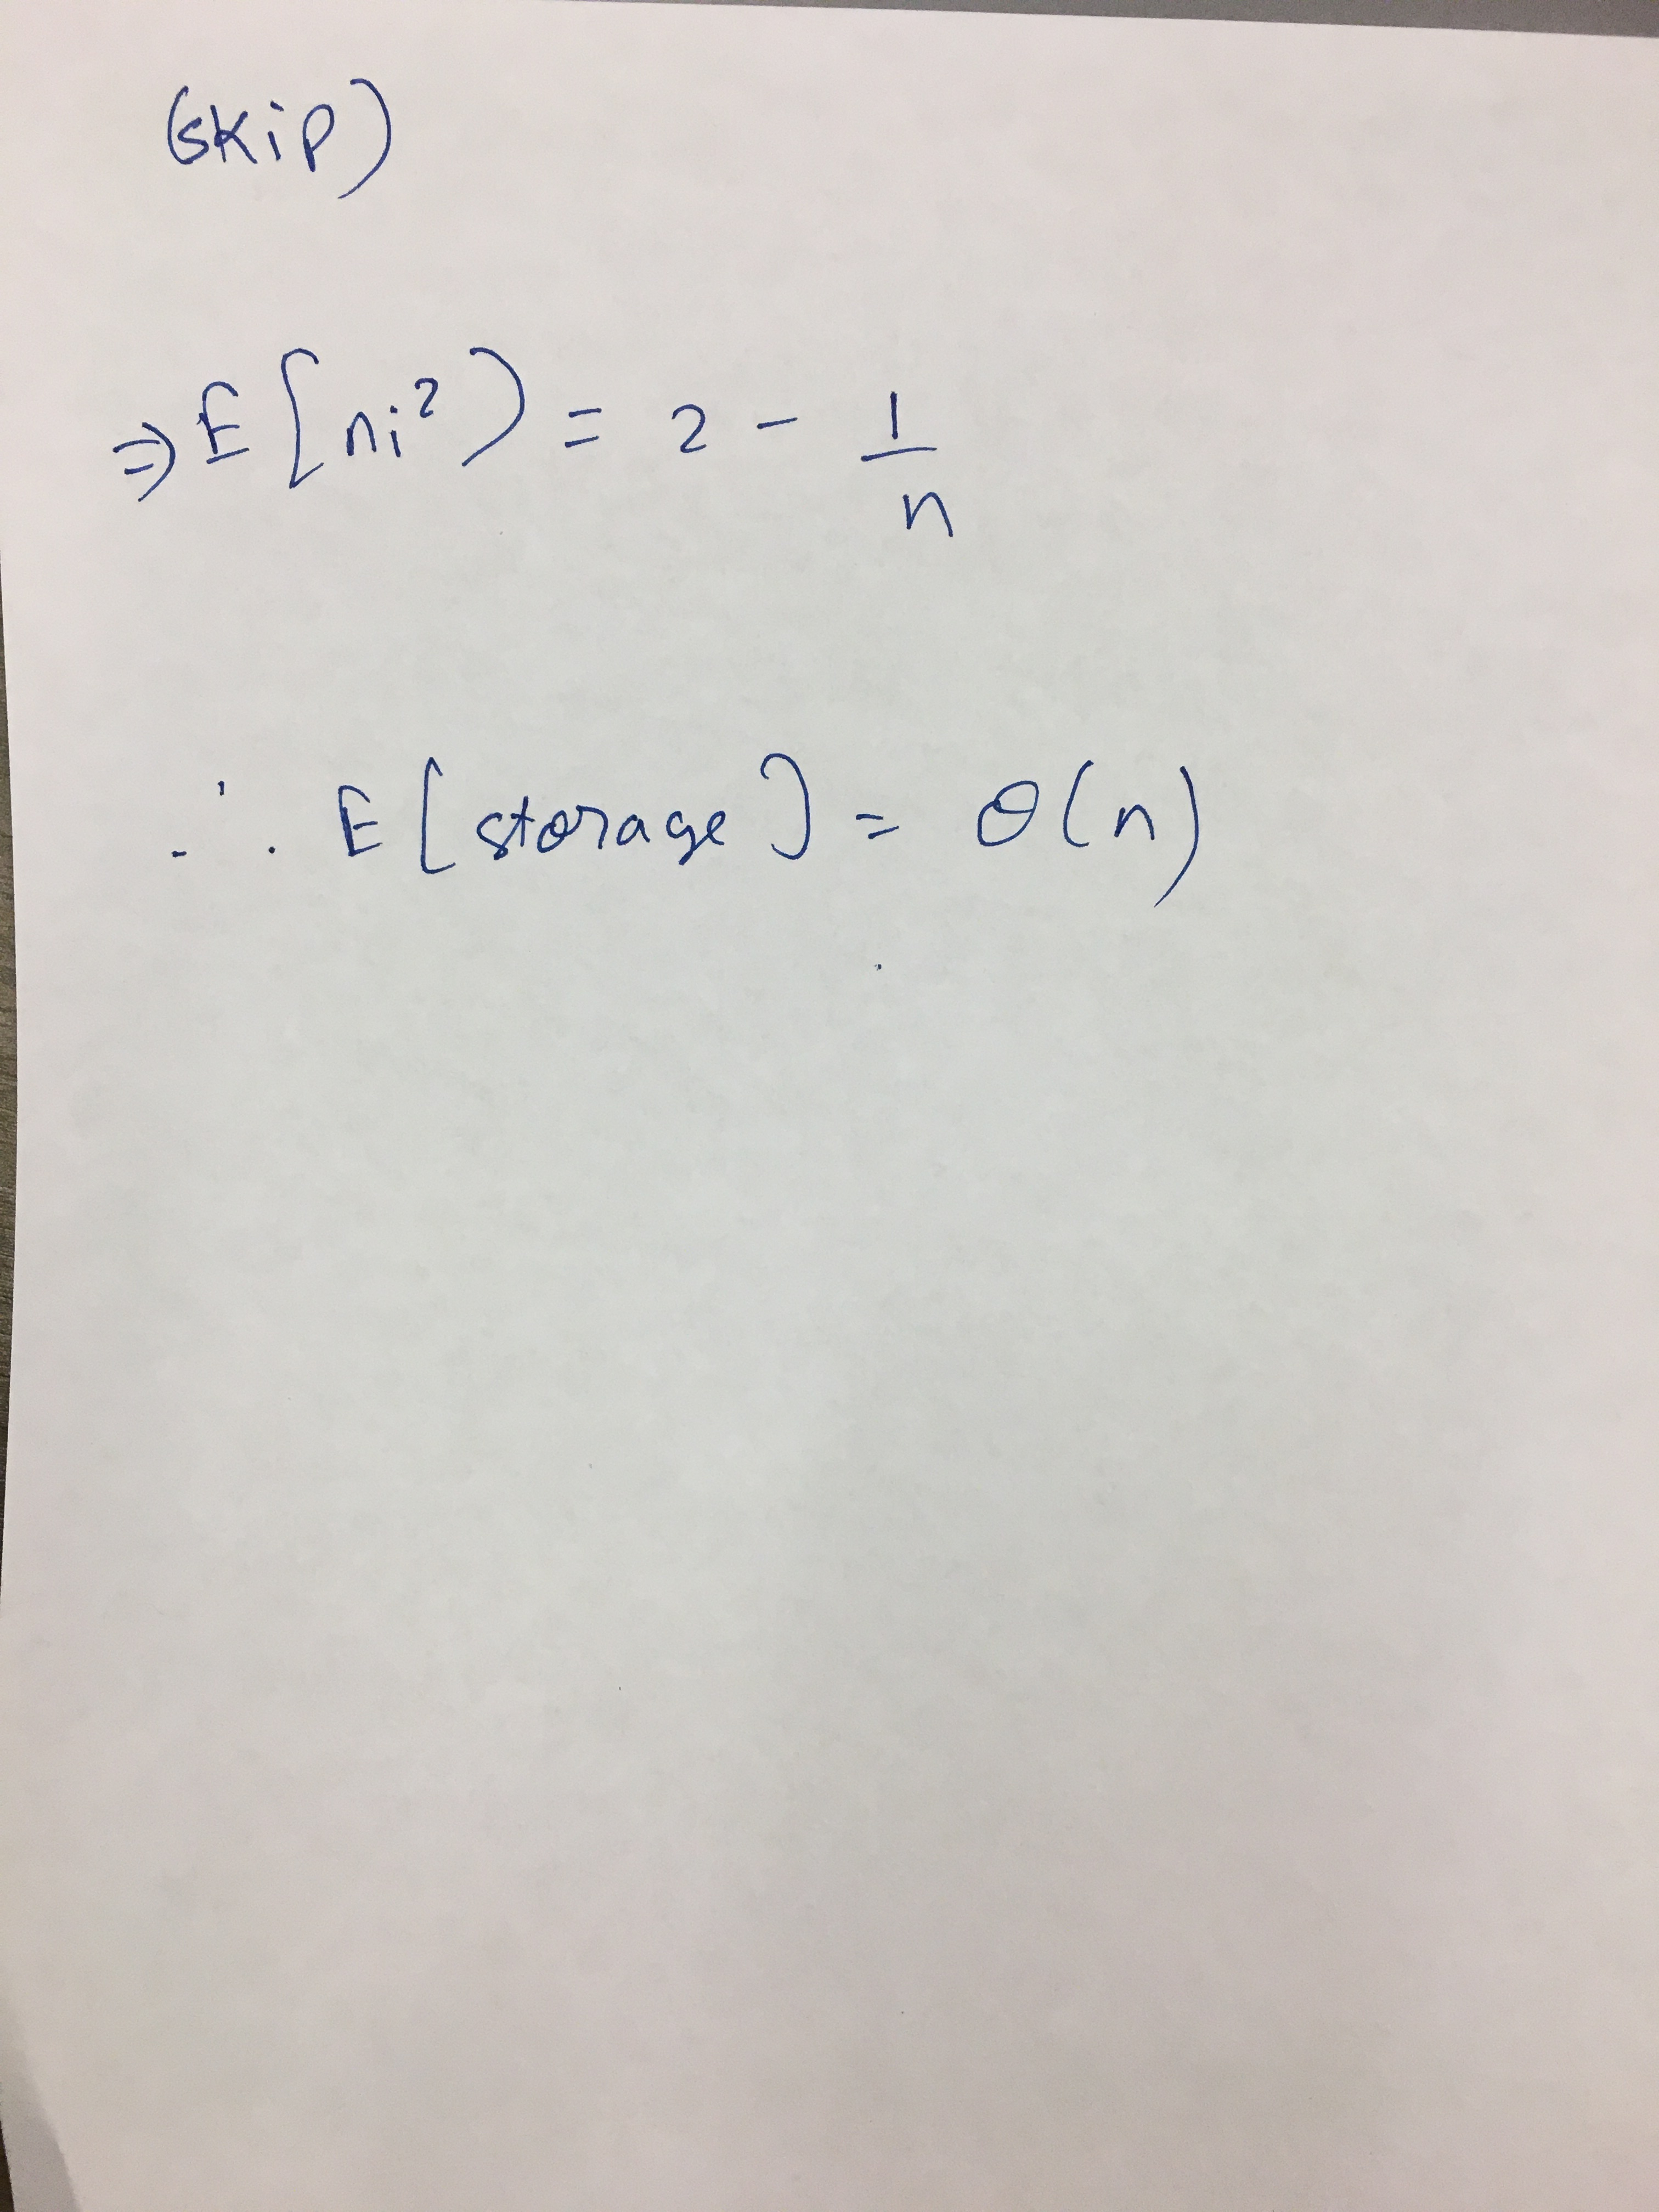 (skip)
⇒ E[ni²) = 2 - 1/n
∴ E[storage] = θ(n)